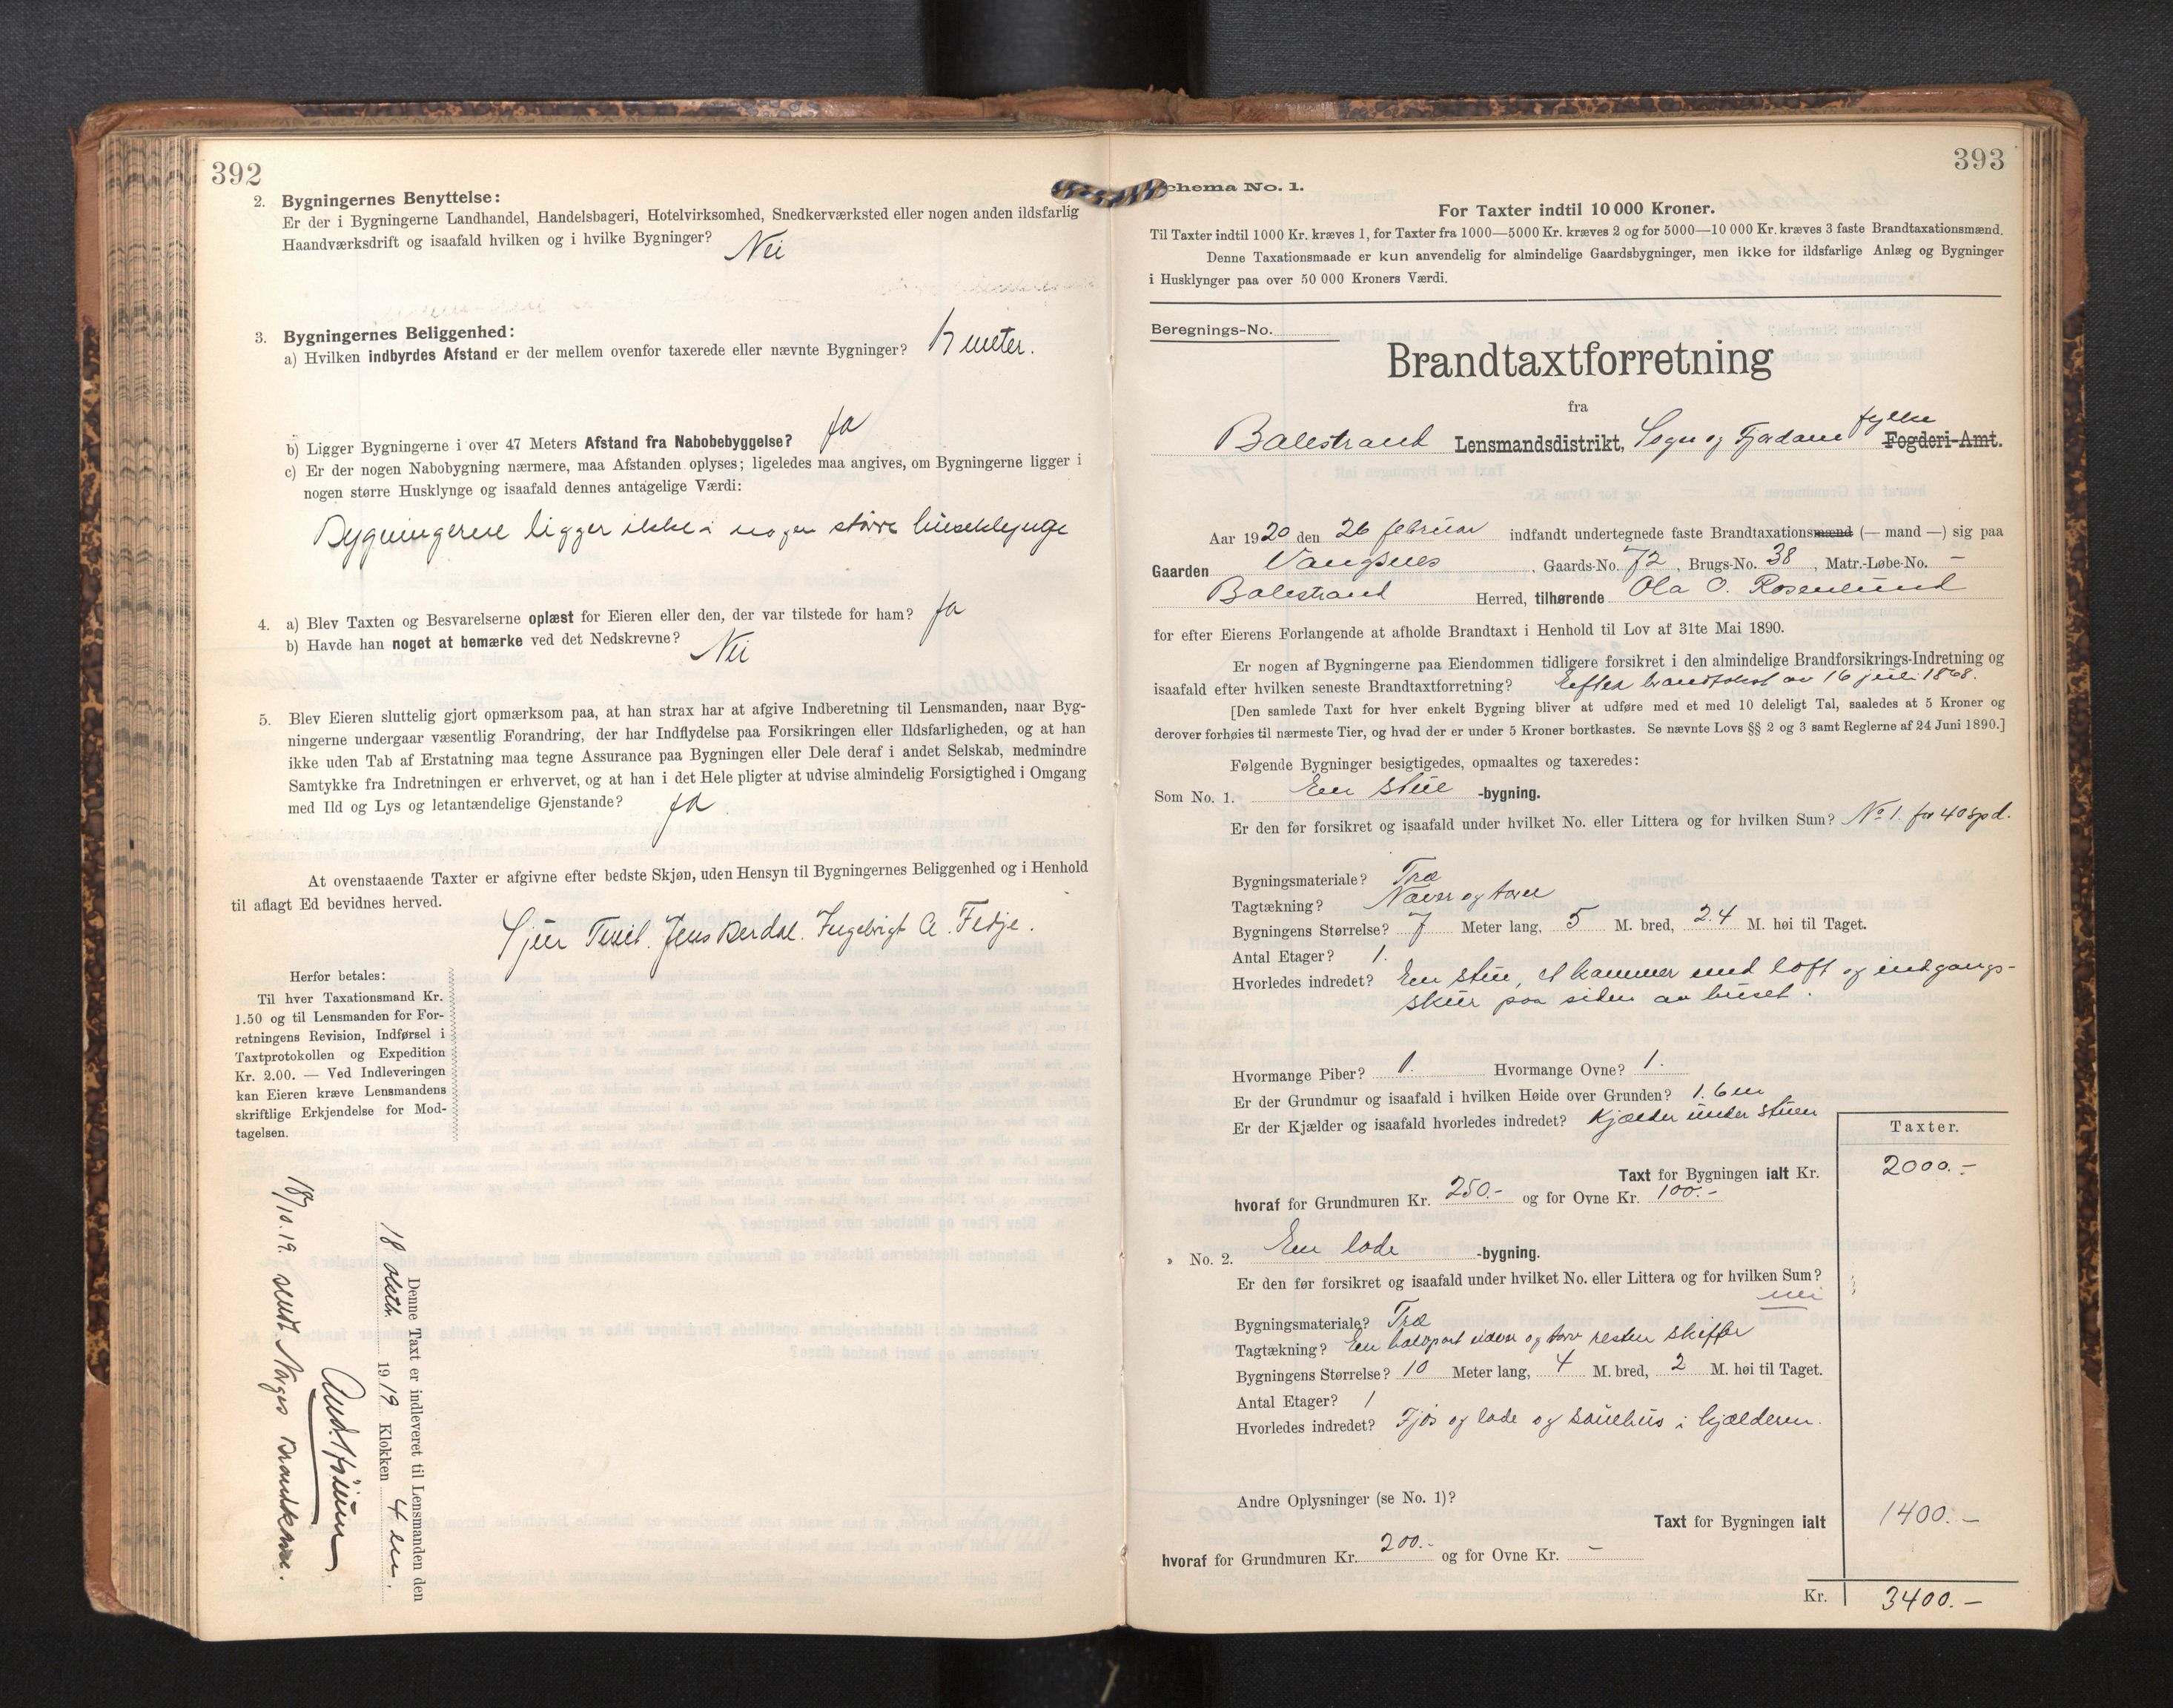 392
2. Bygningernes Benyttelse:
Er der i Bygningerne Landhandel, Handelsbageri, Hotelvirksomhed, Snedkerværksted eller nogen anden ildsfarlig
Haandværksdrift og isaafald hvilken og i hvilke Bygninger? Nei
3. Bygningernes Beliggenhed:
a) Hvilken indbyrdes Afstand er der mellem ovenfor taxerede eller nævnte Bygninger? meter.
b) Ligger Bygningerne i over 47 Meters Afstand fra Nabobebyggelse? Ja
c) Er der nogen Nabobygning nærmere, maa Afstanden oplyses; ligeledes maa angives, om Bygningerne ligger i
nogen større Husklynge og isaafald dennes antagelige Værdi:
Bygningerne ligger ikke i nogen større husklynge
4. a) Blev Taxten og Besvarelserne oplæst for Eieren eller den, der var tilstede for ham? Ja
b) Havde han noget at bemærke ved det Nedskrevne? Nei
5. Blev Eieren sluttelig gjort opmærksom paa, at han strax har at afgive Indberetning til Lensmanden, naar Byg-
ningerne undergaar væsentlig Forandring, der har Indflydelse paa Forsikringen eller Ildsfarligheden, og at han
ikke uden Tab af Erstatning maa tegne Assurance paa Bygningen eller Dele deraf i andet Selskab, medmindre
Samtykke fra Indretningen er erhvervet, og at han i det Hele pligter at udvise almindelig Forsigtighed i Omgang
med Ild og Lys og letantændelige Gjenstande? Ja
At ovenstaaende Taxter er afgivne efter bedste Skjøn, uden Hensyn til Bygningernes Beliggenhed og i Henhold
til aflagt Ed bevidnes herved.
Sjur Jens Berdal. Ingebrigt A. Fedje.
Herfor betales:
Til hver Taxationsmand Kr.
1.50 og til Lensmanden for For-
retningens Revision, Indførsel i
Taxtprotokollen og Expedition
Kr. 2.00. — Ved Indleveringen
kan Eieren kræve Lensmandens
skriftlige Erkjendelse for Mod-
tagelsen.
Denne Taxt er indleveret til Lensmanden den
18 oktbr. 1919 Klokken 4 em.
18/10.19. sendt Norges Brandkasse.
393
chema No. 1.
For Taxter indtil 10 000 Kroner.
Til Taxter indtil 1000 Kr. kræves 1, for Taxter fra 1000—5000 Kr. kræves 2 og for 5000—10 000 Kr. kræves 3 faste Brandtaxationsmænd.
Denne Taxationsmaade er kun anvendelig for almindelige Gaardsbygninger, men ikke for ildsfarlige Anlæg og Bygninger
i Husklynger paa over 50 000 Kroners Værdi.
Beregnings-No.
Brandtaxtforretning
fra
Balestrand Lensmandsdistrikt, Sogn og Fjordane fylke Fogderi-Amt.
Aar 1920 den 26 februar indfandt undertegnede faste Brandtaxationsmænd (— mand —) sig paa
Gaarden Vangsnes, Gaards-No. 72, Brugs-No. 38, Matr.-Løbe-No. –
Balestrand Herred, tilhørende Ola O. Rosenlund
for efter Eierens Forlangende at afholde Brandtaxt i Henhold til Lov af 31te Mai 1890.
Er nogen af Bygningerne paa Eiendommen tidligere forsikret i den almindelige Brandforsikrings-Indretning og
isaafald efter hvilken seneste Brandtaxtforretning? Efter brandtakst av 16 juli 1868.
[Den samlede Taxt for hver enkelt Bygning bliver at udføre med et med 10 deleligt Tal, saaledes at 5 Kroner og
derover forhøies til nærmeste Tier, og hvad der er under 5 Kroner bortkastes. Se nævnte Lovs §§ 2 og 3 samt Reglerne af 24 Juni 1890.]
Følgende Bygninger besigtigedes, opmaaltes og taxeredes:
Som No. 1. En stue -bygning.
Er den før forsikret og isaafald under hvilket No. eller Littera og for hvilken Sum? No 1. for 40 spd.
Bygningsmateriale? Træ
Tagtækning? Næver og torv
Bygningens Størrelse? 7 Meter lang, 5 M. bred, 2.4 M. høi til Taget.
Antal Etager? 1.
Hvorledes indredet? En stue, et kammer med loft og indgangs-
skur paa siden av huset.
Hvormange Piber? 1. Hvormange Ovne? 1.
Er der Grundmur og isaafald i hvilken Høide over Grunden? 1.6 m
Er der Kjælder og isaafald hvorledes indredet? Kjælder under stuen
Taxter.
Taxt for Bygningen ialt Kr. 2000.–
hvoraf for Grundmuren Kr. 250.– og for Ovne Kr. 100.–
» No. 2. En løde -bygning.
Er den før forsikret og isaafald under hvilket No. eller Littera og for hvilken Sum?
nei
Bygningsmateriale? Træ
Tagtækning? En halvpart næver og torv resten skiffer
Bygningens Størrelse? 10 Meter lang, 4 M. bred, 2 M. høi til Taget.
Antal Etager? 1
Hvorledes indredet? Fjøs og løde og sauehus i kjælderen.
Andre Oplysninger (se No. 1)?
Taxt for Bygningen ialt 1400.–
hvoraf for Grundmuren Kr. 200.– og for Ovne Kr. –
Kr. 3400.–